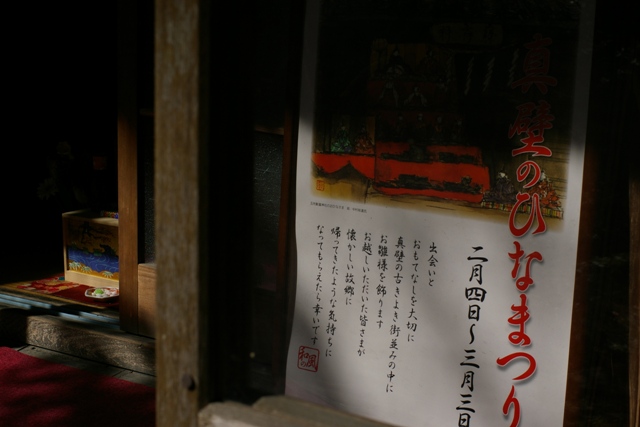 真壁のひなまつり
二月四日～三月三日
出会いと
おもてなしを大切に
真壁の古きよき街並みの中に
お雛様を飾ります
お越しいただいた皆さまが
懐かしい故郷に
帰ってきたような気持ちに
なってもらえたら幸いです